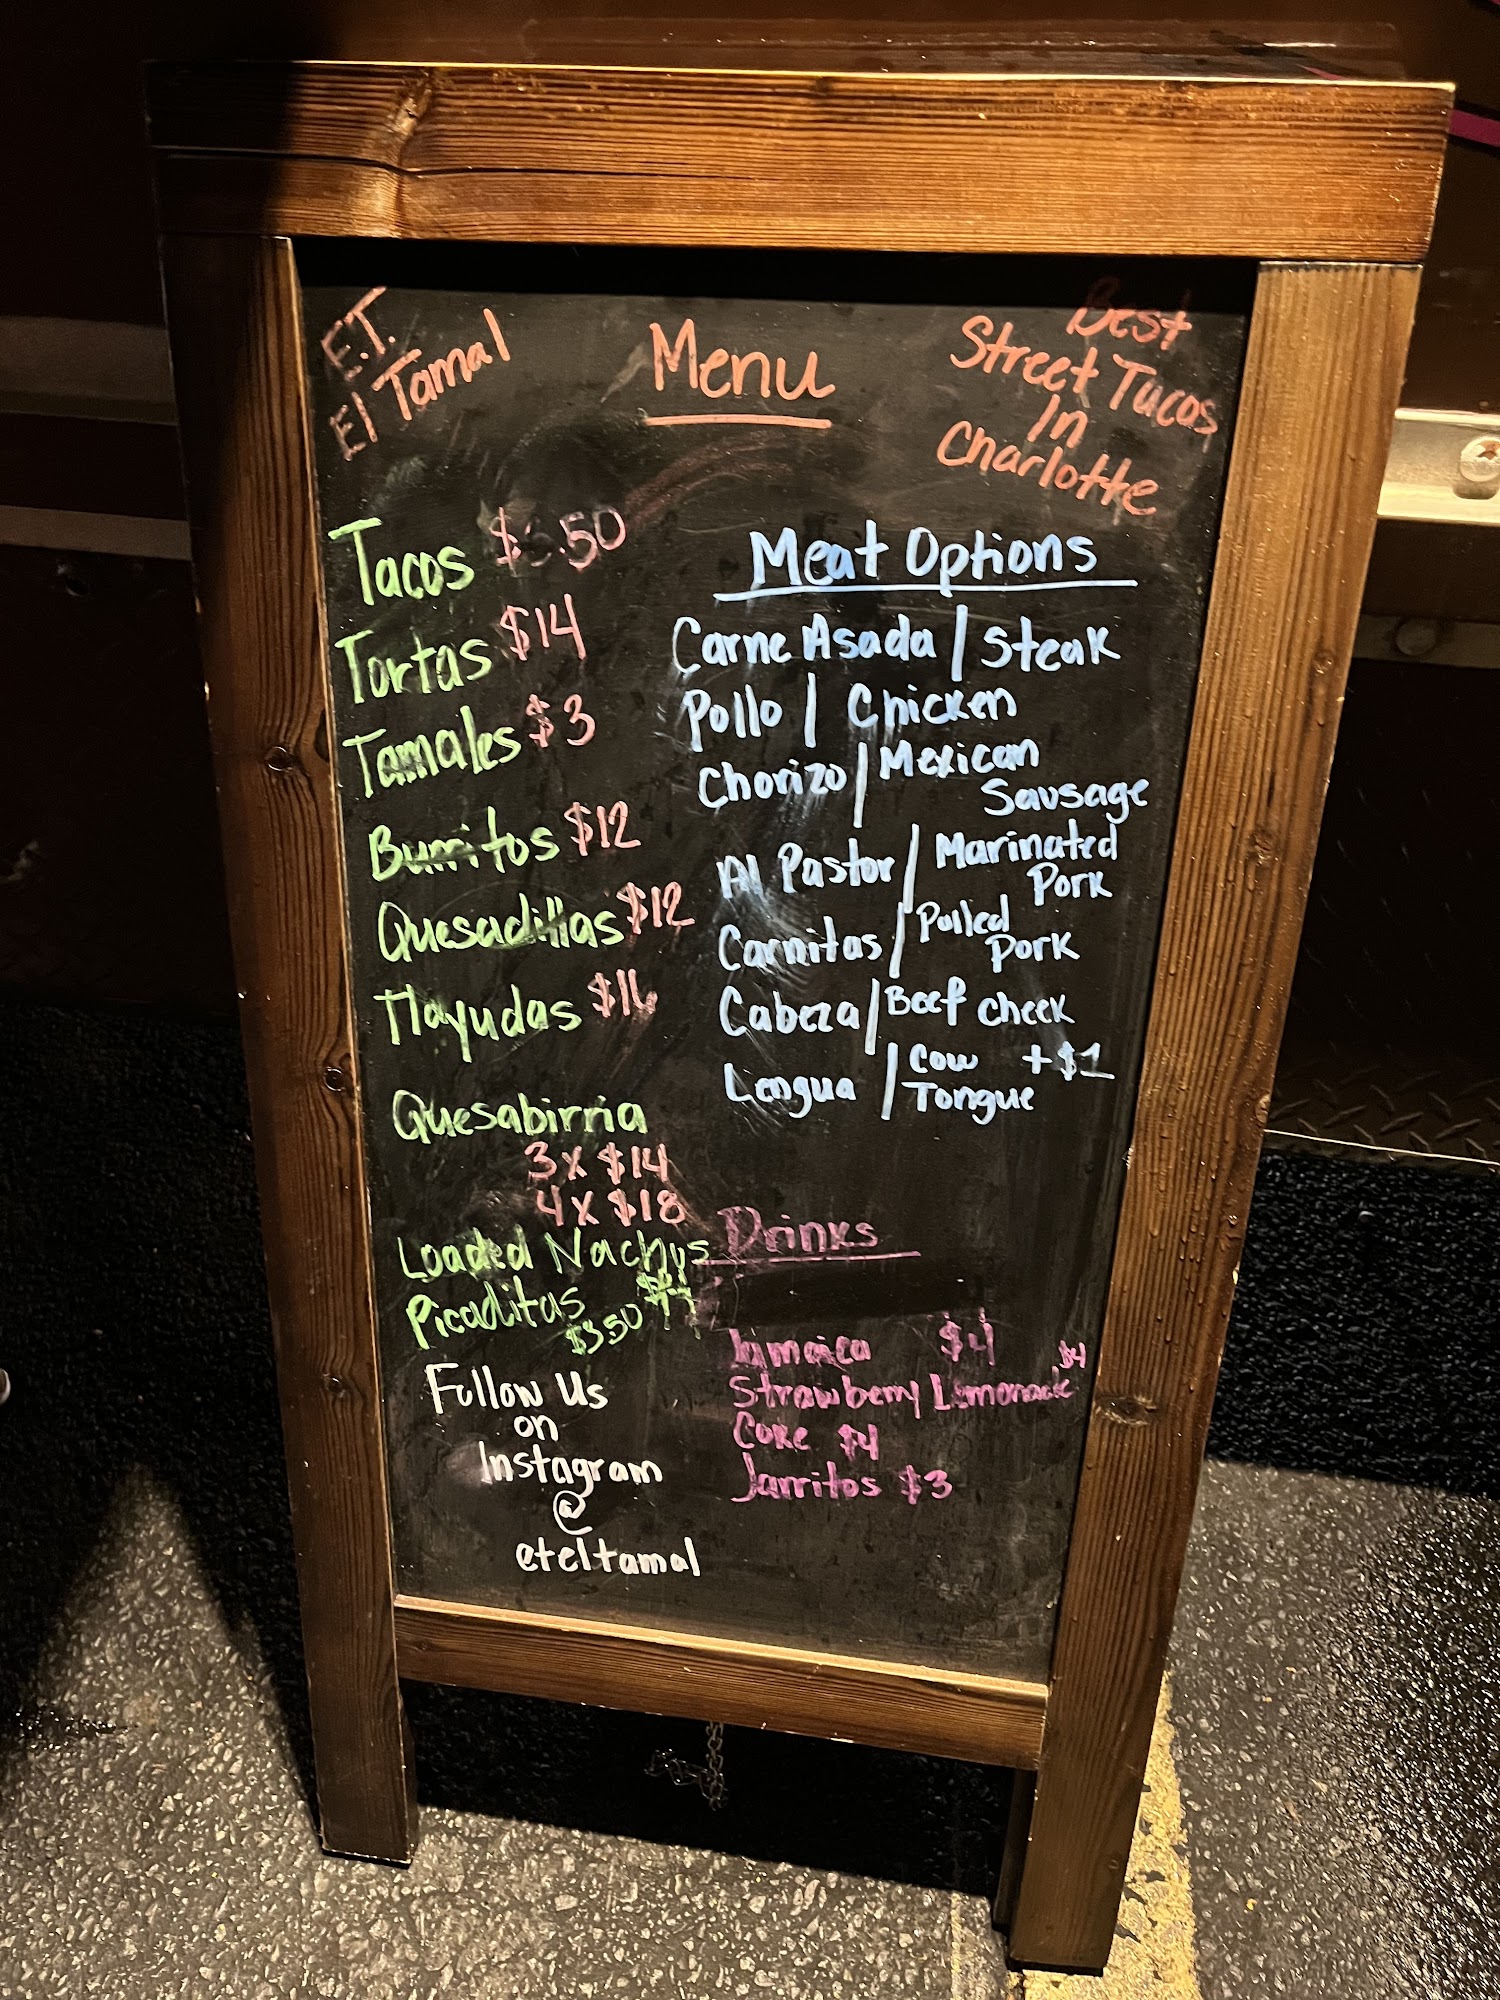 E.T.
El Tamal
Menu
Best
Street Tacos
In
Charlotte
Tacos
Tortas $14
Tamales $3
Burritos $12
Quesadillas $12
Tlayudas
Quesabirria
3x $14
4x $18
Loaded Nachys
Picaditas
$3.50
Follow Us
on
Instagram
@
eteltamal
Meat Options
Carne Asada | Steak
Pollo | Chicken
Chorizo | Mexican
Sausage
Al Pastor / Marinated
Pork
Carnitas / Pulled
Pork
Cabeza / Beef Cheek
Lengua / Cow +$1
Tongue
Drinks
Jamaica $4
Strawberry Lemonade $4
Coke $4
Jarritos $3